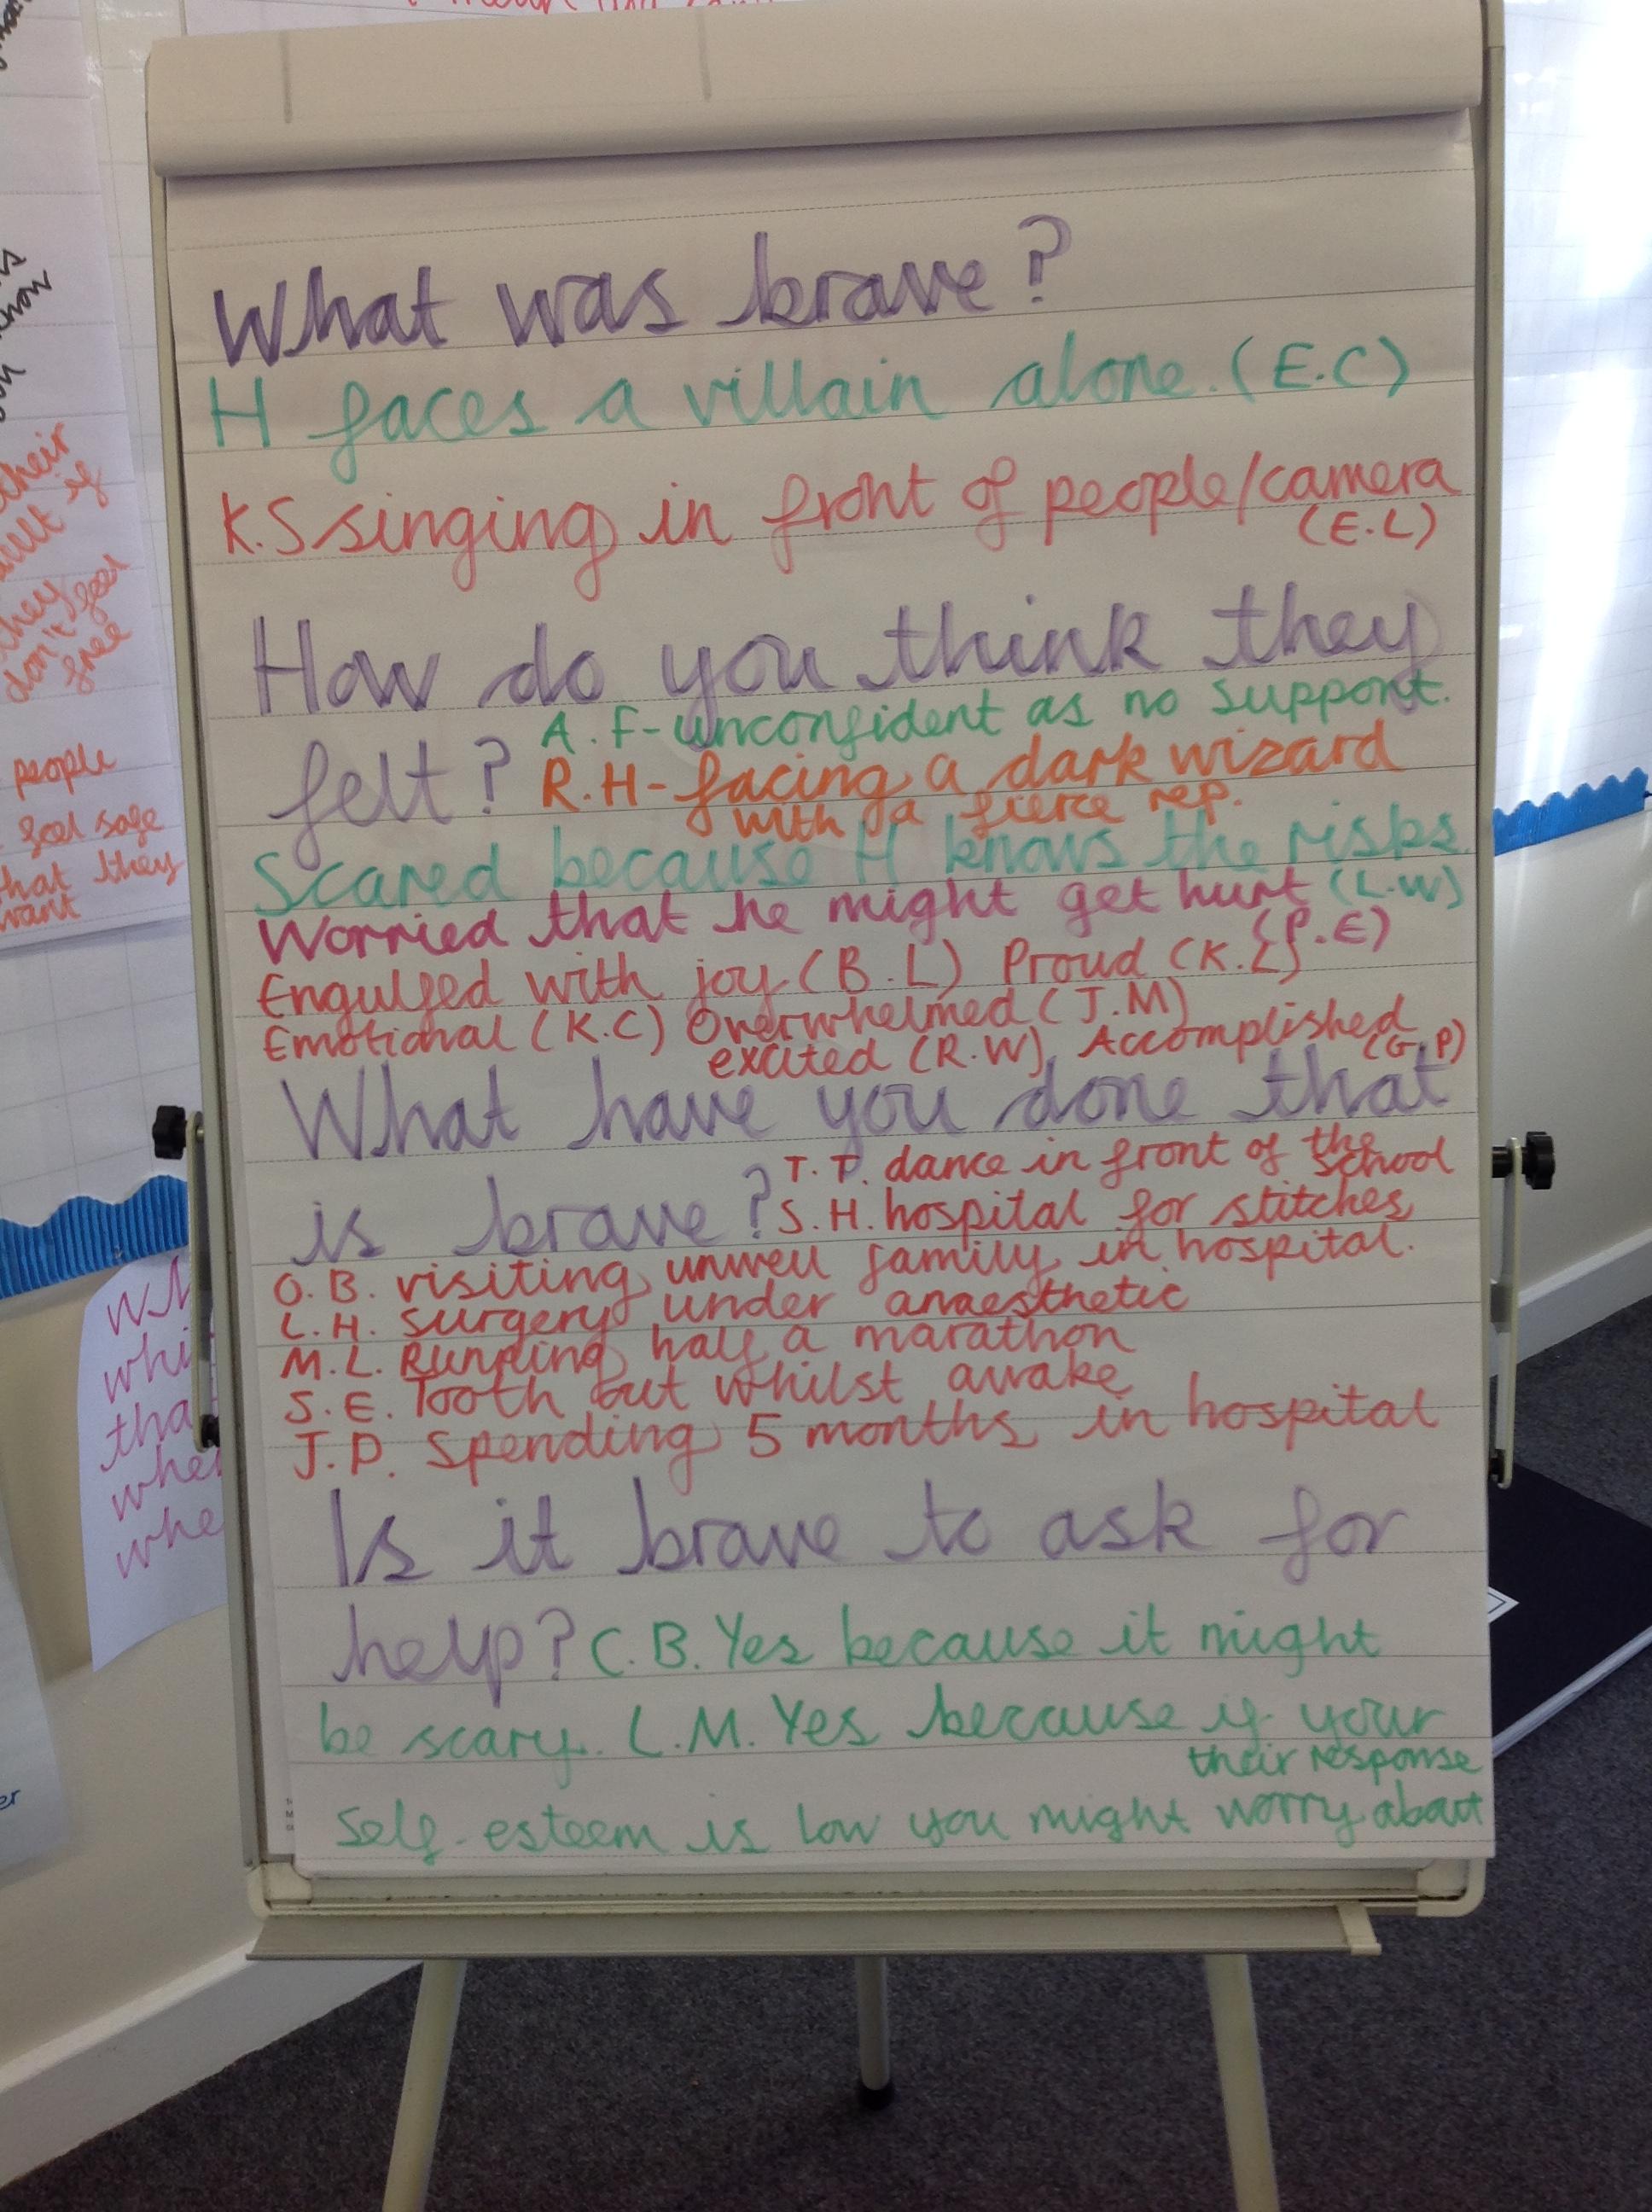 What was brave?
H faces a villain alone. (E.C)
K.S singing in front of people/camera
(E.L)
How do you think they
felt? A.F - unconfident as no support.
R.H - facing a dark wizard
with a fierce rep.
Scared because H knows the risks.
(L.W)
Worried that he might get hurt
(P.E)
Engulfed with joy (B.L) Proud (K.L)
Emotional (K.C) Overwhelmed (J.M)
excited (R.W) Accomplished
(G.P)
What have you done that
is brave? T.T. dance in front of the
school
S.H. hospital for stitches
O.B. visiting unwell family in hospital.
L.H. surgery under anaesthetic
M.L. Running half a marathon
S.E. Tooth out whilst awake
J.D. Spending 5 months in hospital
Is it brave to ask for
help? C.B. Yes because it might
be scary. L.M. Yes because if your
self-esteem is low you might worry about
their response
their
if
they feel
don't
free
people
feel safe
that they
want